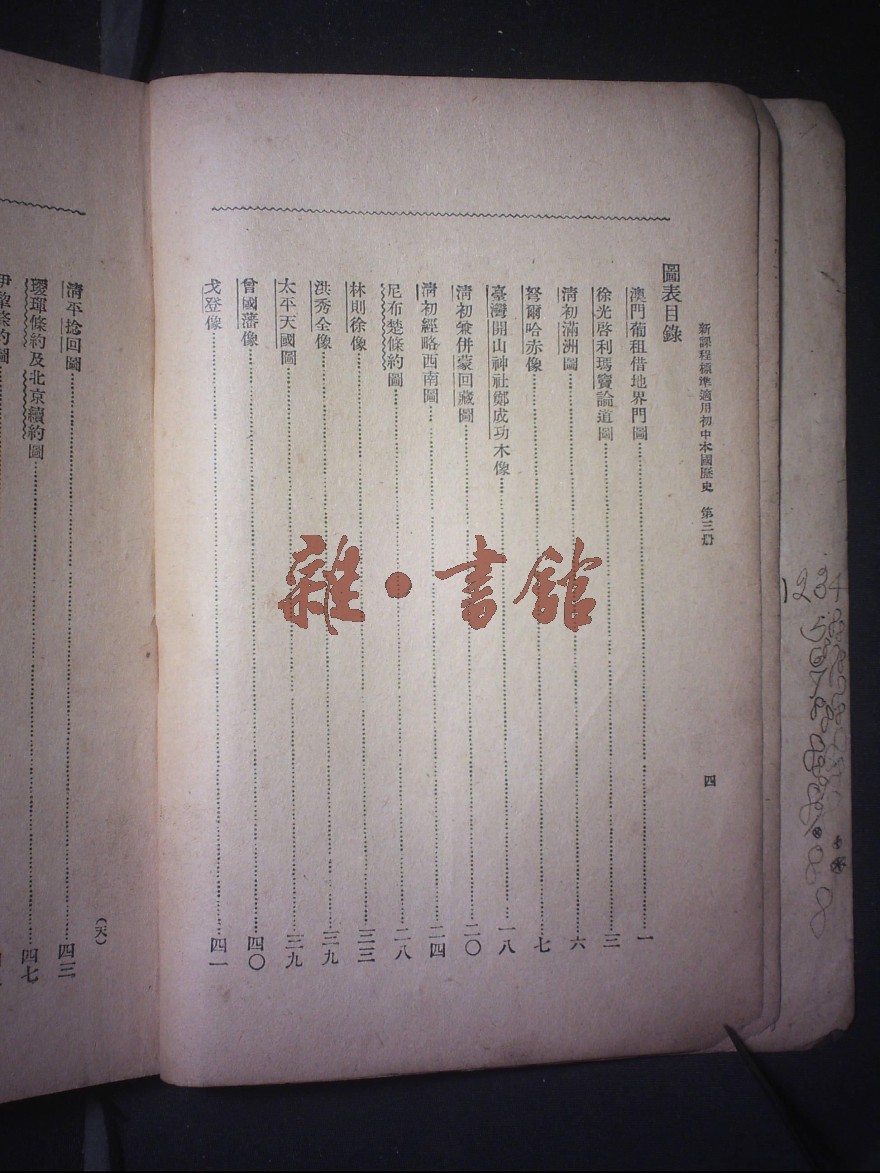 新課程標準適用初中本國歷史 第三册
四
圖表目錄
澳門葡租借地界門圖 一
徐光啓利瑪竇論道圖 三
清初滿洲圖 六
弩爾哈赤像 七
臺灣開山神社鄭成功木像 一八
清初兼併蒙回藏圖 二〇
清初經略西南圖 二四
尼布楚條約圖 二八
林則徐像 三三
洪秀全像 三九
太平天國圖 三九
曾國藩像 四〇
戈登像 四一
清平捻回圖 四三
璦琿條約及北京續約圖 四七
伊犂條約圖
(天)
雜·書館
1234